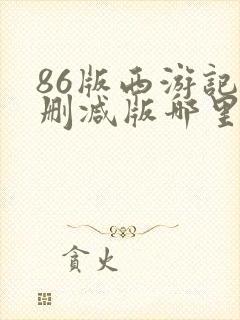 86版西游記
删减版哪里
貪火